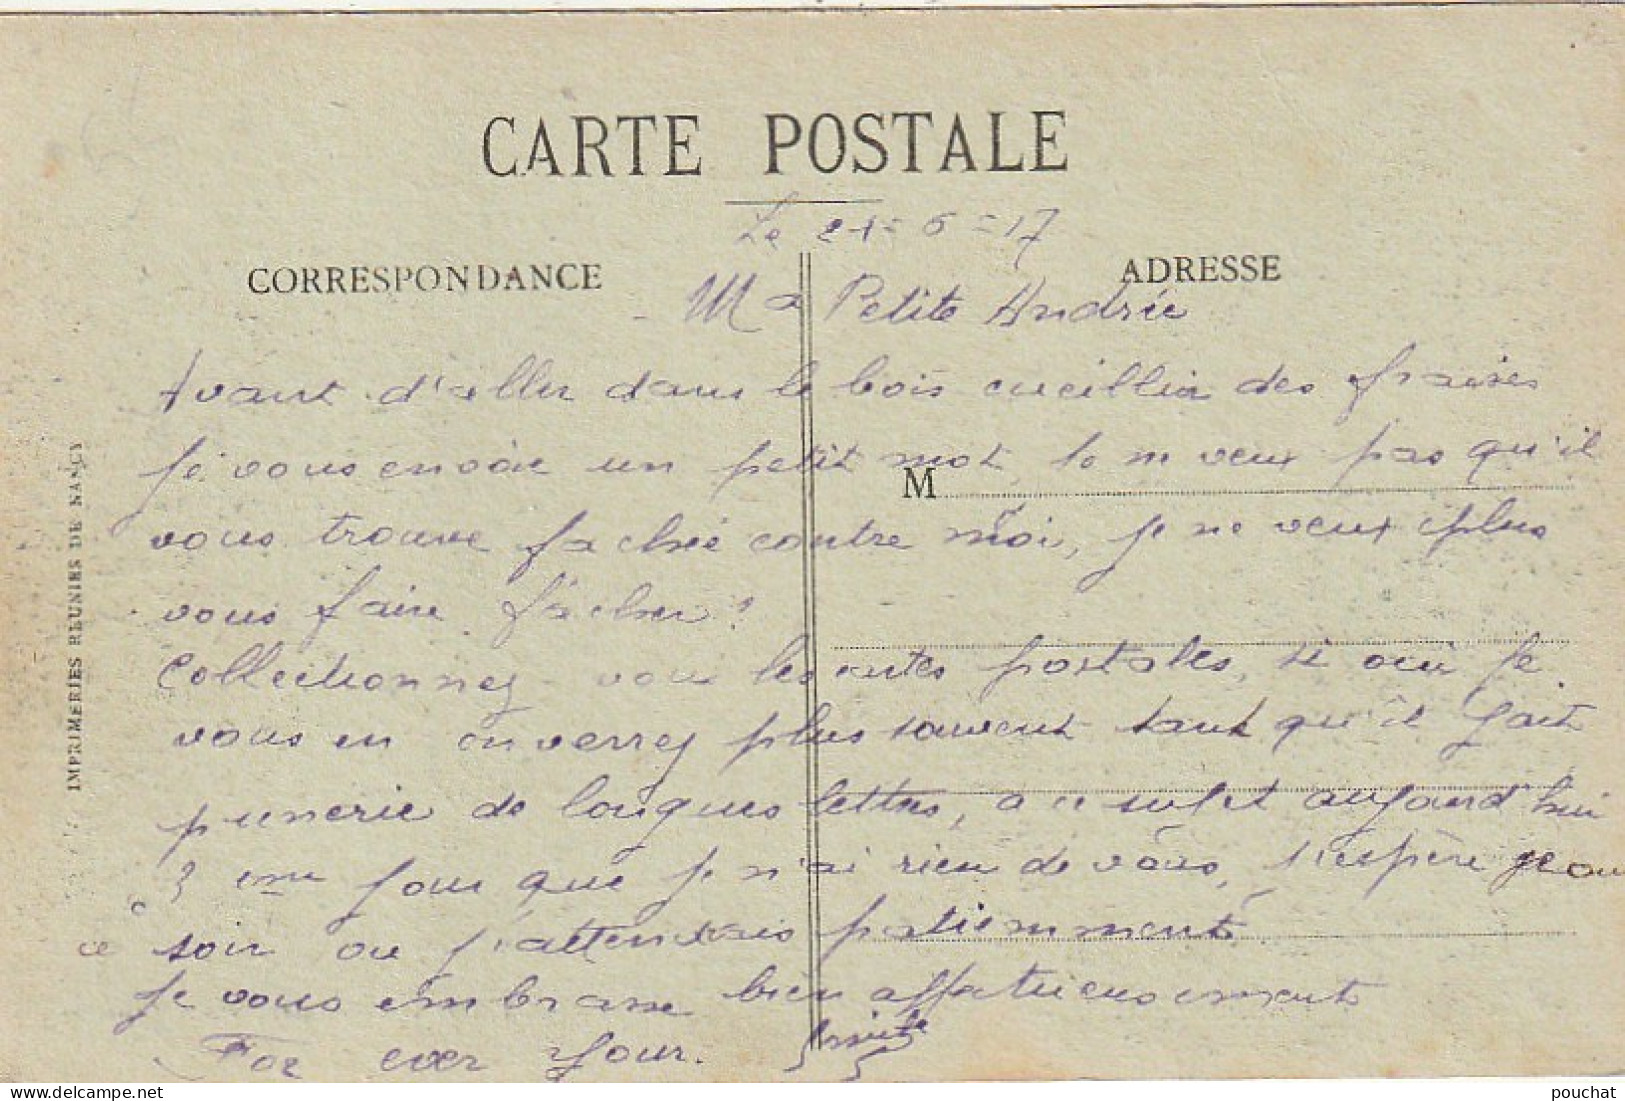 CARTE POSTALE
Le 21=6=17
CORRESPONDANCE
ADRESSE
Ma Petite Andrée
Avant d'aller dans le bois cueillir des fraises
je vous envoie un petit mot, Je n veux pas qu'il
M
vous trouve fachée contre moi, je ne veux plus
vous faire fâcher?
Collectionnez vous les cartes postales, si oui je
vous en enverrez plus souvent tant qu'il fait
punerie de longues lettres, a ce sujet aujourd'hui
3 eme jour que je n'ai rien de vous, j'espère que
ce soir ou j'attendrais patiemment
Je vous embrasse bien affectueusement
For ever Your.
IMPRIMERIES REUNIES DE NANCY
pouchat